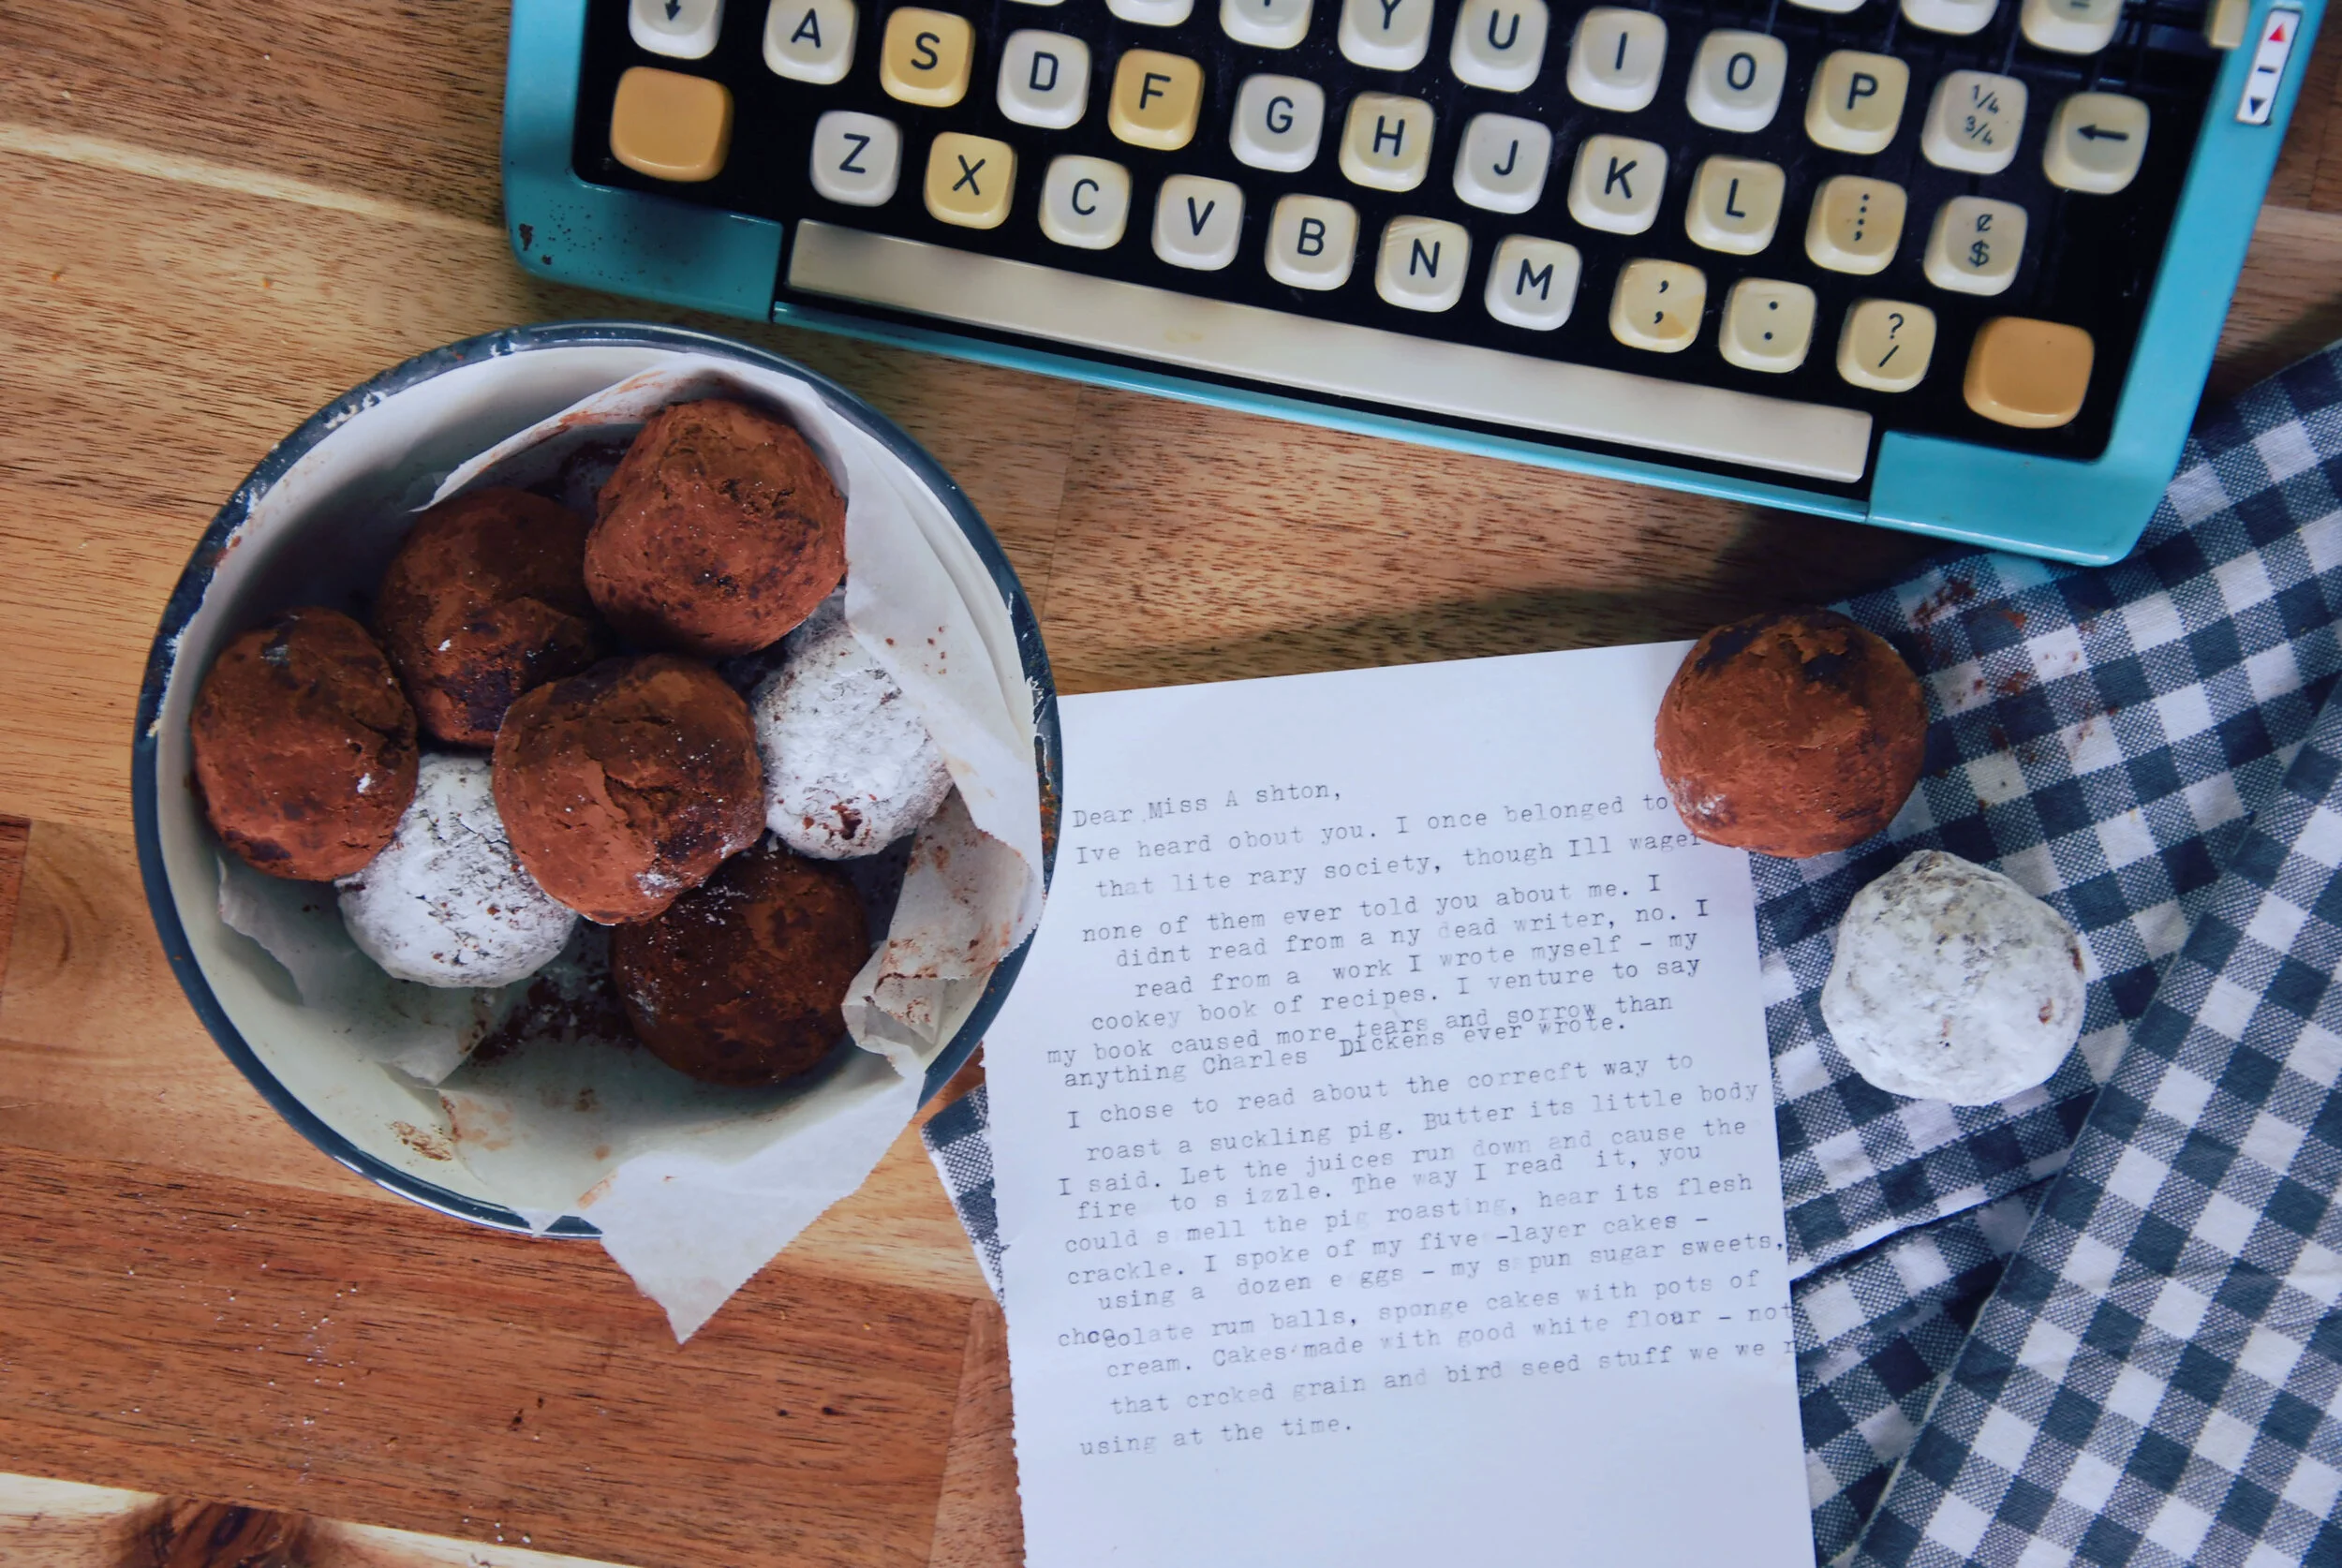 Y U I O P ¼ ¾ ←
A S D F G H J K L ¢ $
Z X C V B N M , ; : ? /
Dear Miss A shton,
Ive heard obout you. I once belonged to
that lite rary society, though Ill wager
none of them ever told you about me. I
didnt read from a ny dead writer, no. I
read from a work I wrote myself - my
cookey book of recipes. I venture to say
my book caused more tears and sorrow than
anything Charles Dickens ever wrote.
I chose to read about the correcft way to
roast a suckling pig. Butter its little body
I said. Let the juices run down and cause the
fire to s izzle. The way I read it, you
could s mell the pig roasting, hear its flesh
crackle. I spoke of my five -layer cakes -
using a dozen e ggs - my s pun sugar sweets,
chocolate rum balls, sponge cakes with pots of
cream. Cakes made with good white flour - not
that crcked grain and bird seed stuff we we
using at the time.